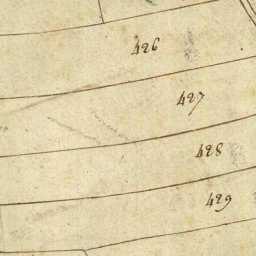 426
427
428
429